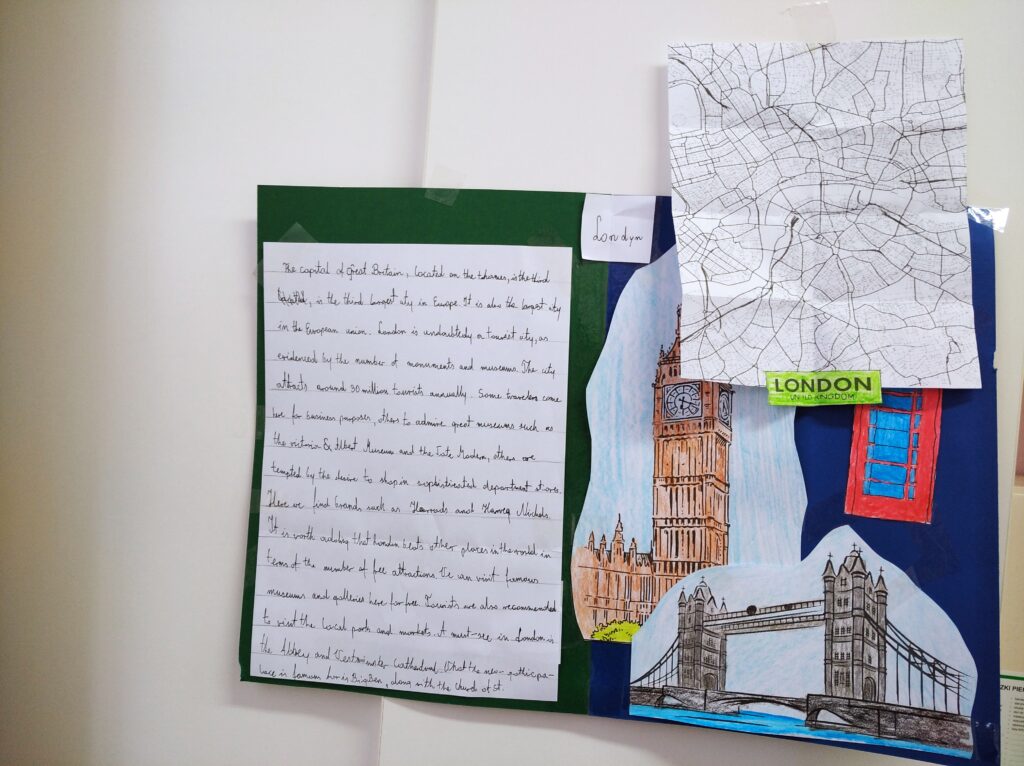 The capital of Great Britain, located on the thames, is the third
located, is the third largest city in Europe. It is also the largest city
in the European union. London is undoubtedly a tourist city, as
evidenced by the number of monuments and museums. The city
attracts around 30 million tourists annually. Some travelers come
here for business purposes, others to admire great museums such as
the victoria & Albert Museum and the Tate Modern, others are
tempted by the desire to shop in sophisticated department stores.
Here we find brands such as Harrods and Harvey Nichols.
It is worth adding that London beats other places in the world in
terms of the number of free attractions. We can visit famous
museums and galleries here for free. Tourists are also recommended
to visit the local parks and markets. A must-see in London is
the Abbey and Westminster Cathedral. What the neo-gothic pa-
lace is famous for is Big Ben, along with the church of St.
Londyn
LONDON
UNITED KINGDOM